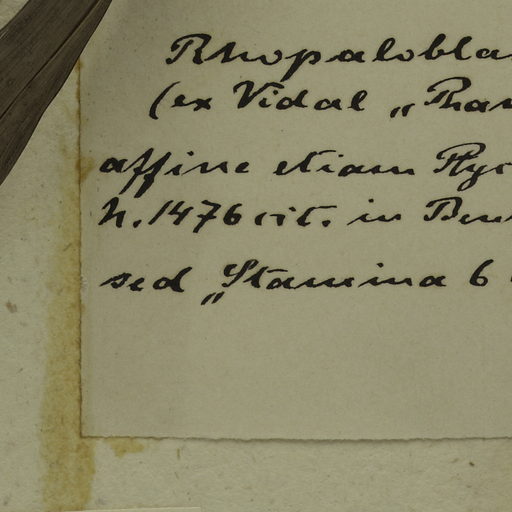 Rhopalobla
(ex Vidal „Phan
affine etiam Ptyc
n. 1476 cit. in Ben
sed „Stamina 6